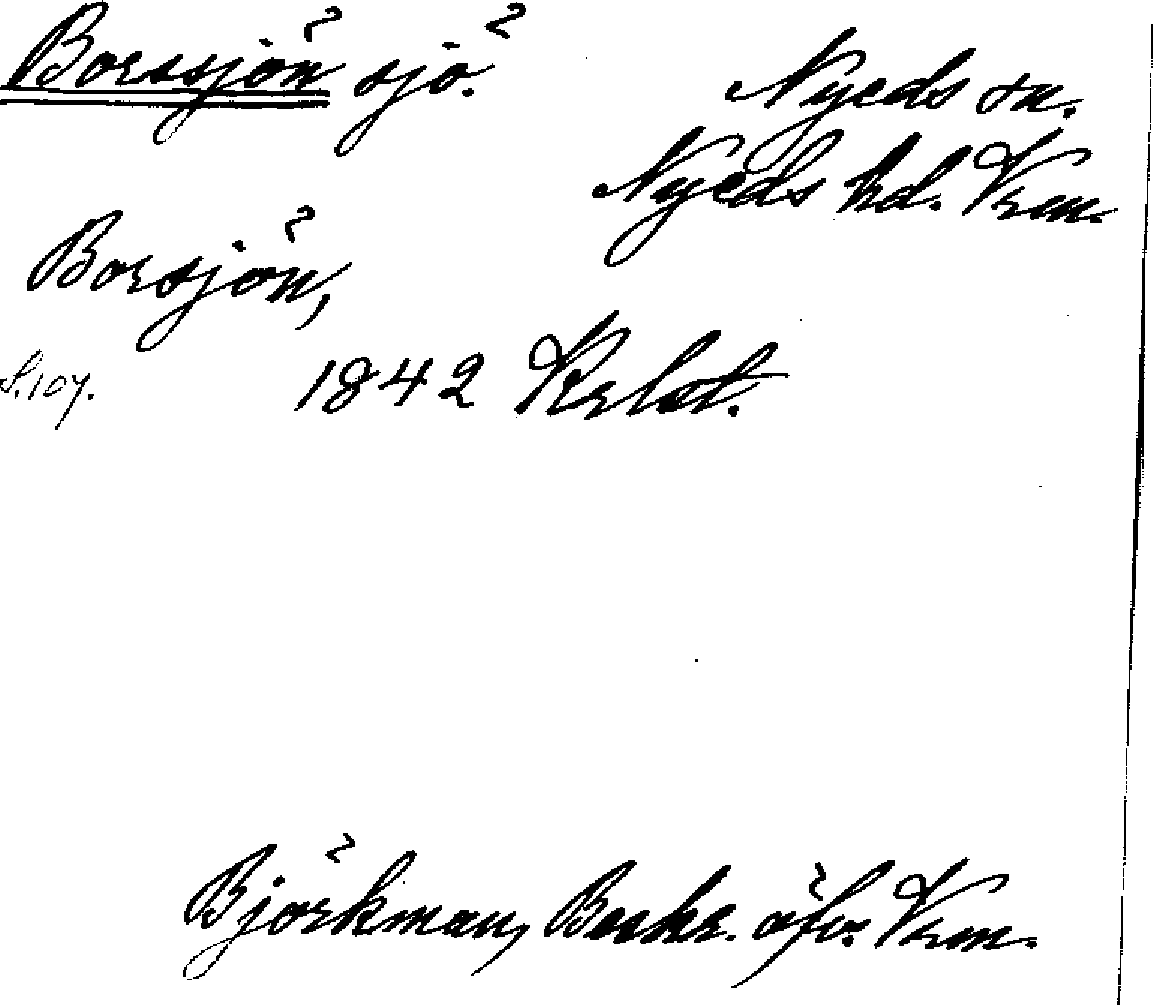 Borssjön sjö.
Nyeds sn.
Nyeds hd. Vrm.
Borsjön,
S. 107.
1842
Björkman, Beskr. öfv. Vrm.